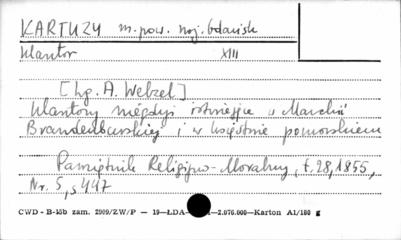 KARTUZY m. pow. woj. Gdańsk
klasztor XIII
[by. A. Welzel]
klasztory niegdyś istniejące w Marchii
Brandenburskiej i w księstwie pomorskiem
Pamiętnik Religijno-Moralny, t. 28, 1855,
Nr. 5, s 447
CWD - B-15b zam. 2909/ZW/P — 19—ŁDA- —2.076.000—Karton A1/180 g